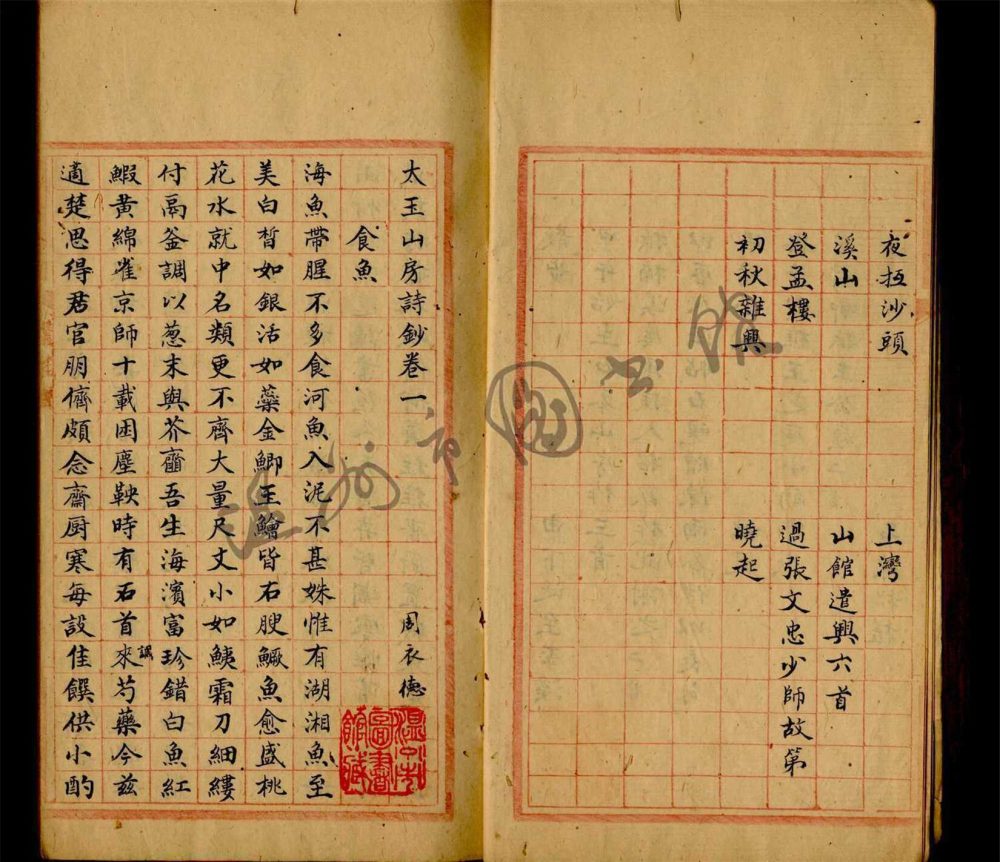 夜抵沙頭
上灣
溪山
山館遣興六首
登孟樓
過張文忠少師故第
初秋雜興
曉起
太玉山房詩鈔卷一
周衣德
食魚
海魚帶腥不多食河魚入泥不甚姝惟有湖湘魚至
美白皙如銀活如藥金鯽王鱠皆右腴鱖魚愈盛桃
花水就中名類更不齊大量尺丈小如鮧霜刀細縷
付鬲釜調以葱末與芥虀吾生海濱富珍錯白魚紅
鰕黃綿雀京師十載困塵鞅時有石首來芍藥今茲
適楚思得君官朋儕頗念齋厨寒每設佳饌供小酌
溫州
圖書
館藏
溫州市圖書館